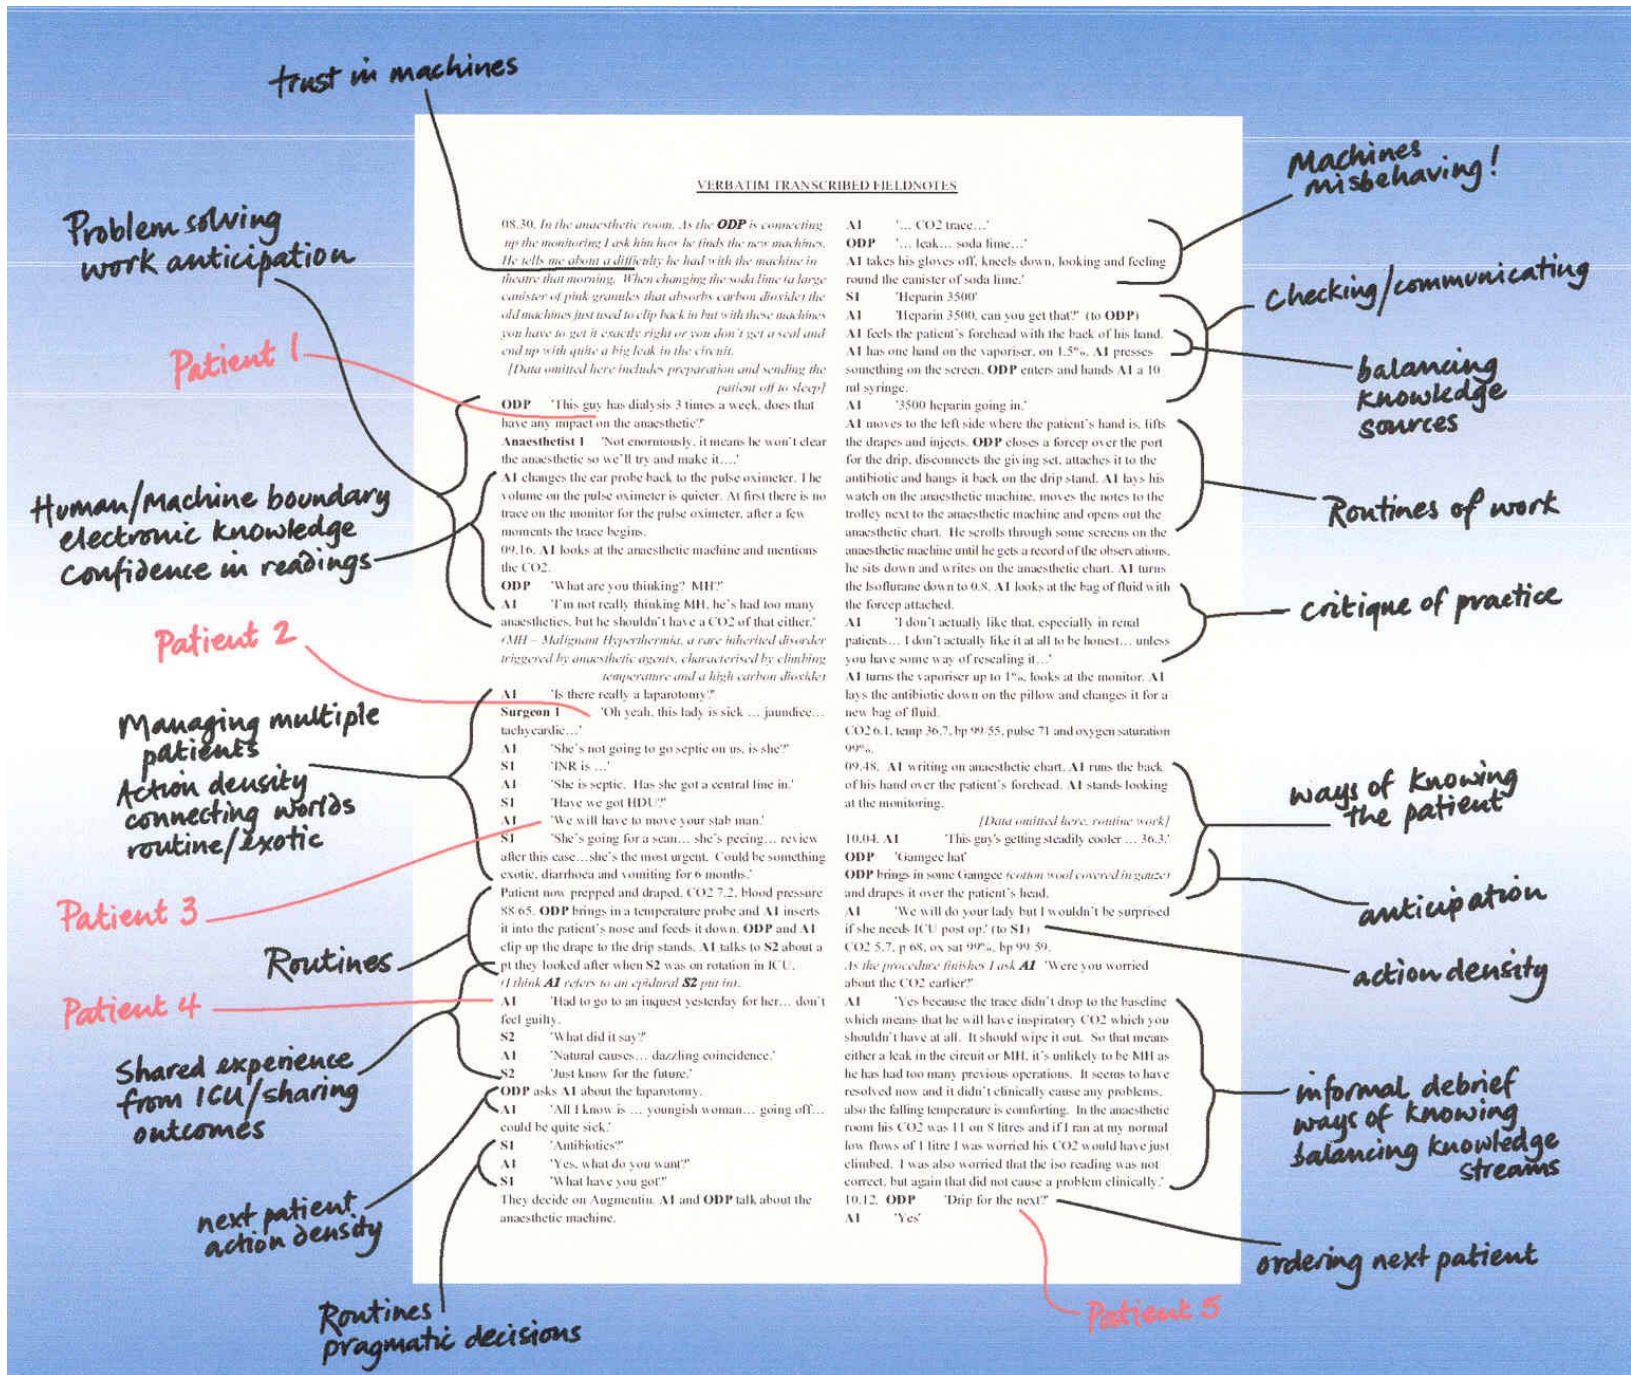 trust in machines
Problem solving
work anticipation
Patient 1
Human/Machine boundary
electronic knowledge
confidence in readings
Patient 2
Managing multiple
patients
Action density
connecting worlds
routine/exotic
Patient 3
Routines
Patient 4
Shared experience
from ICU/sharing
outcomes
next patient
action density
Routines
pragmatic decisions
VERBATIM TRANSCRIBED FIELDNOTES
08.30. In the anaesthetic room. As the ODP is connecting
up the monitoring I ask him how he finds the new machines.
He tells me about a difficulty he had with the machine in
theatre that morning. When changing the soda lime (a large
canister of pink granules that absorbs carbon dioxide) the
old machines just used to clip back in but with these machines
you have to get it exactly right or you don't get a seal and
end up with quite a big leak in the circuit.
[Data omitted here includes preparation and sending the
patient off to sleep]
ODP 'This guy has dialysis 3 times a week, does that
have any impact on the anaesthetic?'
Anaesthetist 1 'Not enormously, it means he won't clear
the anaesthetic so we'll try and make it….'
A1 changes the ear probe back to the pulse oximeter. The
volume on the pulse oximeter is quieter. At first there is no
trace on the monitor for the pulse oximeter, after a few
moments the trace begins.
09.16. A1 looks at the anaesthetic machine and mentions
the CO2.
ODP 'What are you thinking? MH?'
A1 'I'm not really thinking MH, he's had too many
anaesthetics, but he shouldn't have a CO2 of that either.'
(MH – Malignant Hyperthermia, a rare inherited disorder
triggered by anaesthetic agents, characterised by climbing
temperature and a high carbon dioxide)
A1 'Is there really a laparotomy?'
Surgeon 1 'Oh yeah, this lady is sick … jaundice…
tachycardic…'
A1 'She's not going to go septic on us, is she?'
S1 'INR is …'
A1 'She is septic. Has she got a central line in.'
S1 'Have we got HDU?'
A1 'We will have to move your stab man.'
S1 'She's going for a scan… she's peeing… review
after this case…she's the most urgent. Could be something
exotic, diarrhoea and vomiting for 6 months.'
Patient now prepped and draped. CO2 7.2, blood pressure
88/65. ODP brings in a temperature probe and A1 inserts
it into the patient's nose and feeds it down. ODP and A1
clip up the drape to the drip stands. A1 talks to S2 about a
pt they looked after when S2 was on rotation in ICU.
(I think A1 refers to an epidural S2 put in).
A1 'Had to go to an inquest yesterday for her… don't
feel guilty.
S2 'What did it say?'
A1 'Natural causes… dazzling coincidence.'
S2 'Just know for the future.'
ODP asks A1 about the laparotomy.
A1 'All I know is … youngish woman… going off…
could be quite sick.'
S1 'Antibiotics?'
A1 'Yes, what do you want?'
S1 'What have you got?'
They decide on Augmentin. A1 and ODP talk about the
anaesthetic machine.
A1 '… CO2 trace…'
ODP '… leak… soda lime…'
A1 takes his gloves off, kneels down, looking and feeling
round the canister of soda lime.'
S1 'Heparin 3500'
A1 'Heparin 3500, can you get that?' (to ODP)
A1 feels the patient's forehead with the back of his hand.
A1 has one hand on the vaporiser, on 1.5%. A1 presses
something on the screen. ODP enters and hands A1 a 10
ml syringe.
A1 '3500 heparin going in.'
A1 moves to the left side where the patient's hand is, lifts
the drapes and injects. ODP closes a forcep over the port
for the drip, disconnects the giving set, attaches it to the
antibiotic and hangs it back on the drip stand. A1 lays his
watch on the anaesthetic machine, moves the notes to the
trolley next to the anaesthetic machine and opens out the
anaesthetic chart. He scrolls through some screens on the
anaesthetic machine until he gets a record of the observations,
he sits down and writes on the anaesthetic chart. A1 turns
the Isoflurane down to 0.8. A1 looks at the bag of fluid with
the forcep attached.
A1 'I don't actually like that, especially in renal
patients… I don't actually like it at all to be honest… unless
you have some way of resealing it…'
A1 turns the vaporiser up to 1%, looks at the monitor. A1
lays the antibiotic down on the pillow and changes it for a
new bag of fluid.
CO2 6.1, temp 36.7, bp 99/55, pulse 71 and oxygen saturation
99%.
09.48. A1 writing on anaesthetic chart. A1 runs the back
of his hand over the patient's forehead. A1 stands looking
at the monitoring.
[Data omitted here, routine work]
10.04. A1 'This guy's getting steadily cooler … 36.3.'
ODP 'Gamgee hat'
ODP brings in some Gamgee (cotton wool covered in gauze)
and drapes it over the patient's head.
A1 'We will do your lady but I wouldn't be surprised
if she needs ICU post op.' (to S1)
CO2 5.7, p 68, ox sat 99%, bp 99/59.
As the procedure finishes I ask A1 'Were you worried
about the CO2 earlier?'
A1 'Yes because the trace didn't drop to the baseline
which means that he will have inspiratory CO2 which you
shouldn't have at all. It should wipe it out. So that means
either a leak in the circuit or MH, it's unlikely to be MH as
he has had too many previous operations. It seems to have
resolved now and it didn't clinically cause any problems,
also the falling temperature is comforting. In the anaesthetic
room his CO2 was 11 on 8 litres and if I ran at my normal
low flows of 1 litre I was worried his CO2 would have just
climbed. I was also worried that the iso reading was not
correct, but again that did not cause a problem clinically.'
10.12. ODP 'Drip for the next?'
A1 'Yes'
Machines
misbehaving!
Checking/communicating
balancing
knowledge
sources
Routines of work
critique of practice
ways of knowing
the patient
anticipation
action density
informal debrief
ways of knowing
balancing knowledge
streams
ordering next patient
Patient 5